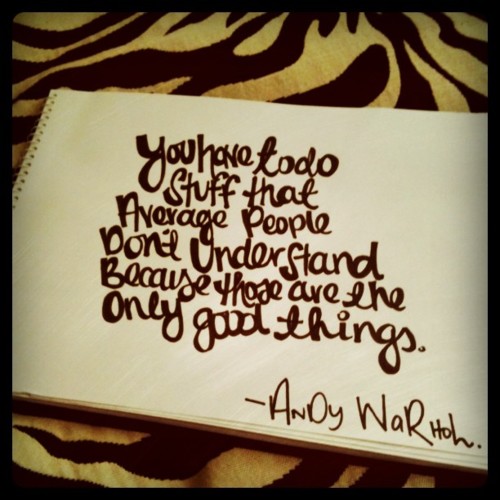 You have to do
Stuff that
Average People
Don't Understand
Because those are the
Only good things.
-ANDY WaRHoL.